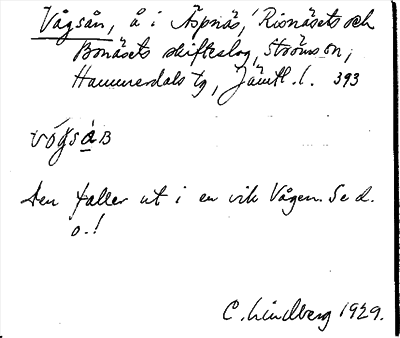 Vågsån, å i Äspnäs, Risnäsets och
Bonäsets skifteslag, Ströms sn,
Hammerdals tg, Jämtl. l. 393
vógsàB
Den faller ut i en vik Vågen. Se d.
o.!
C. Lindberg 1929.